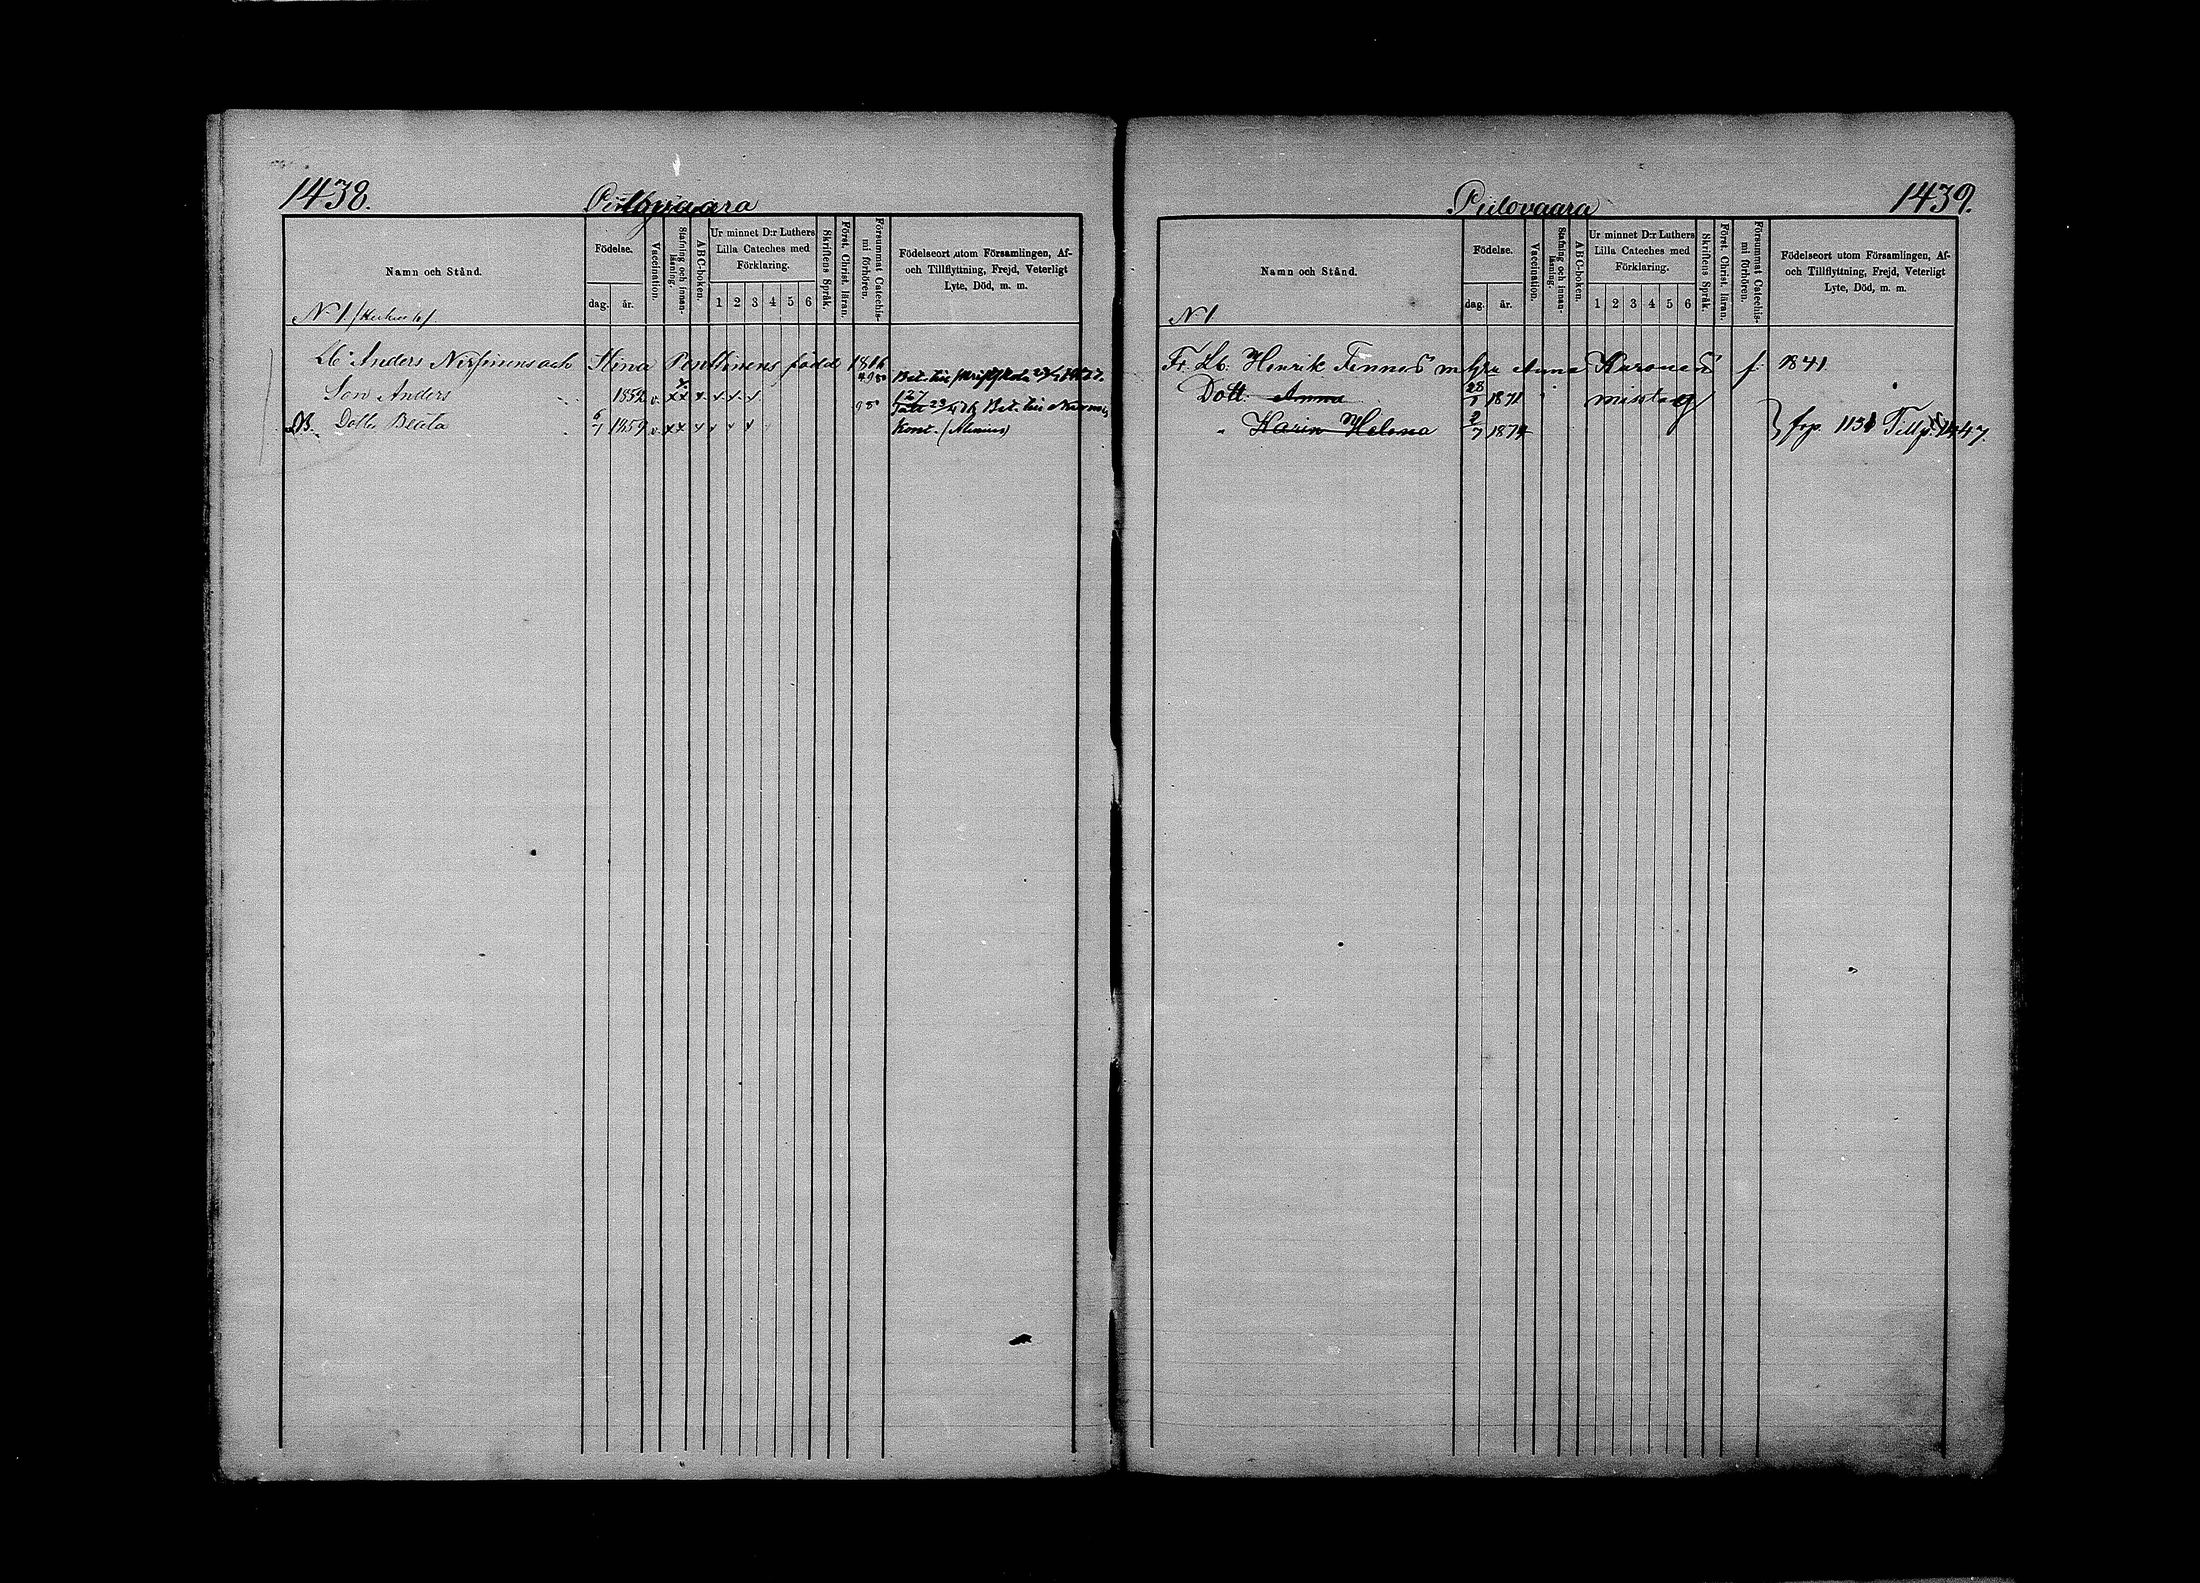 1438.
Piilovaara
Namn och Stånd.
Födelse.
dag.
år.
Vaccination.
Stafning och innan-läsning.
ABC-boken.
Ur minnet D:r Luthers
Lilla Cateches med
Förklaring.
1 2 3 4 5 6
Skriftens Språk.
Först. Christ. läran.
Försummat Catechis-
mi förhören.
Födelseort utom Församlingen, Af-
och Tillflyttning, Frejd, Veterligt
Lyte, Död, m. m.
N 1
Lb. Anders Stina Penttinens född 1816
Son Anders 1852 v. x x x x x x
Dotter Beata 6/1 1859 v. x x x x x x
1439.
Piilovaara
Namn och Stånd.
Födelse.
dag.
år.
Vaccination.
Stafning och innan-
läsning.
ABC-boken.
Ur minnet D:r Luthers
Lilla Cateches med
Förklaring.
1 2 3 4 5 6
Skriftens Språk.
Först. Christ. läran.
Försummat Catechis-
mi förhören.
Födelseort utom Församlingen, Af-
och Tillflyttning, Frejd, Veterligt
Lyte, Död, m. m.
N 1
Fr. Lb. Henrik m Anna f. 1841
Dott. Anna 28/1 1871
" Karin Helena 2/7 1874 } frp. 1131